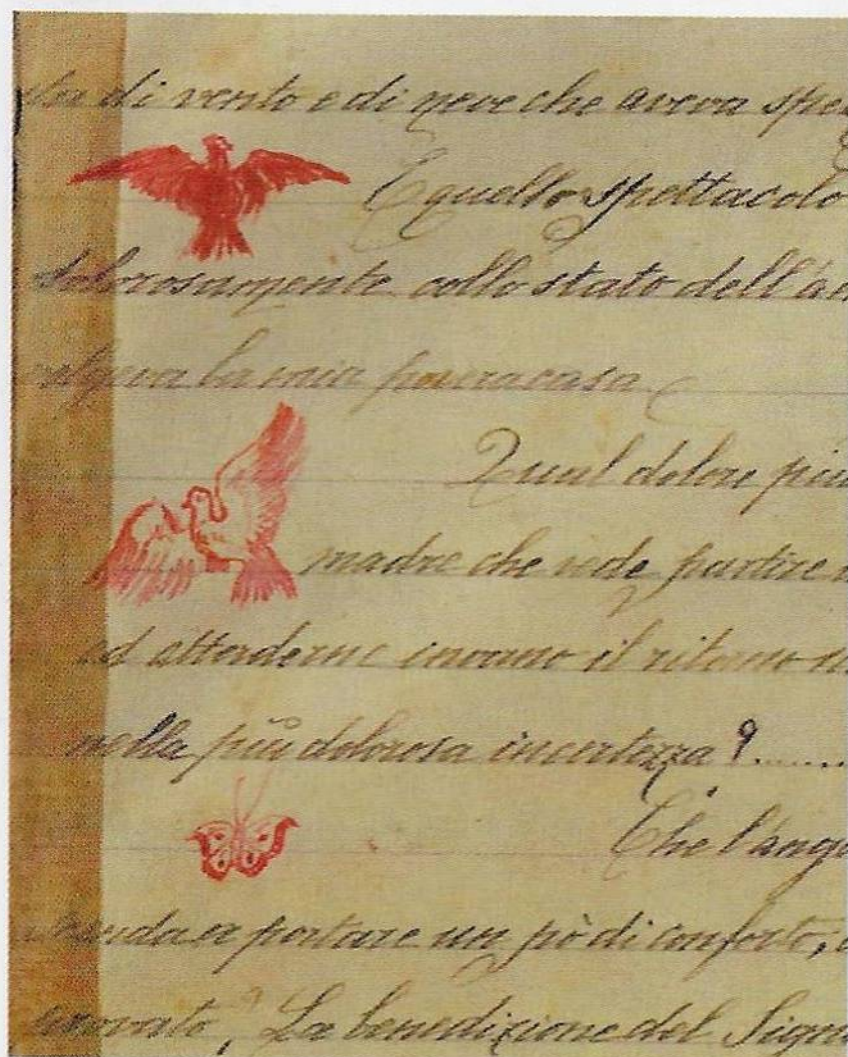 di vento e di neve che aveva spe
E quello spettacolo
dolorosamente collo stato dell'a
la mia povera casa
Qual dolore più
madre che vede partire
ed attenderne invano il ritorno
nella più dolorosa incertezza?.......
Che l'ange
a portare un pò di conforto,
La benedizione del Sign